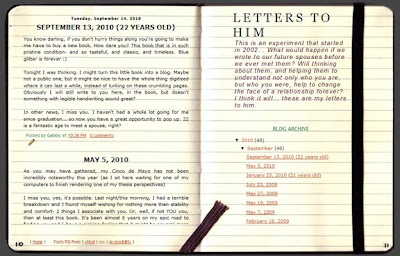 Tuesday, September 14, 2010
SEPTEMBER 13, 2010 (22 YEARS OLD)
You know darling, if you don't hurry things along you're going to make
me have to buy a new book. How dare you? This book that is in such
pristine condition- and so tasteful, and classic, and timeless. Blue
glitter is forever :)
Tonight I was thinking. I might turn this little book into a blog. Maybe
not a public one, but it might be nice to have the whole thing digitized
where it can last a while, instead of lurking on these crumbling pages.
Obviously I will still write to you here, in the book, but doesn't
something with legible handwriting sound great?
In other news, I miss you. I haven't had a whole lot going for me
since graduation... so now you have a great opportunity to pop up. 22
is a fantastic age to meet a spouse, right?
Posted by Gabby at 10:36 PM 0 comments
MAY 5, 2010
As you may have gathered, my Cinco de Mayo has not been
incredibly noteworthy this year (as I sit here waiting for one of my
computers to finish rendering one of my thesis perspectives)
I miss you, yes, it's possible. Last night/this morning, I had a terrible
breakdown and I found myself wishing for nothing more than stability
and comfort- 2 things I associate with you. Or, well, if not YOU you,
then at least this book. It's been almost 8 years on my epic road to
10 | Home | Posts RSS Feed | | Accessibility |
LETTERS TO
HIM
This is an experiment that started
in 2002... What would happen if we
wrote to our future spouses before
we ever met them? Will thinking
about them, and helping them to
understand not only who you are,
but who you were, help to change
the face of a relationship forever?
I think it will... these are my letters
to him.
BLOG ARCHIVE
▼ 2010 (48)
▼ September (48)
September 13, 2010 (22 years old)
May 5, 2010
January 25, 2010 (21 years old)
July 23, 2009
May 27, 2009
May 19, 2009
May 7, 2009
February 10, 2009
11